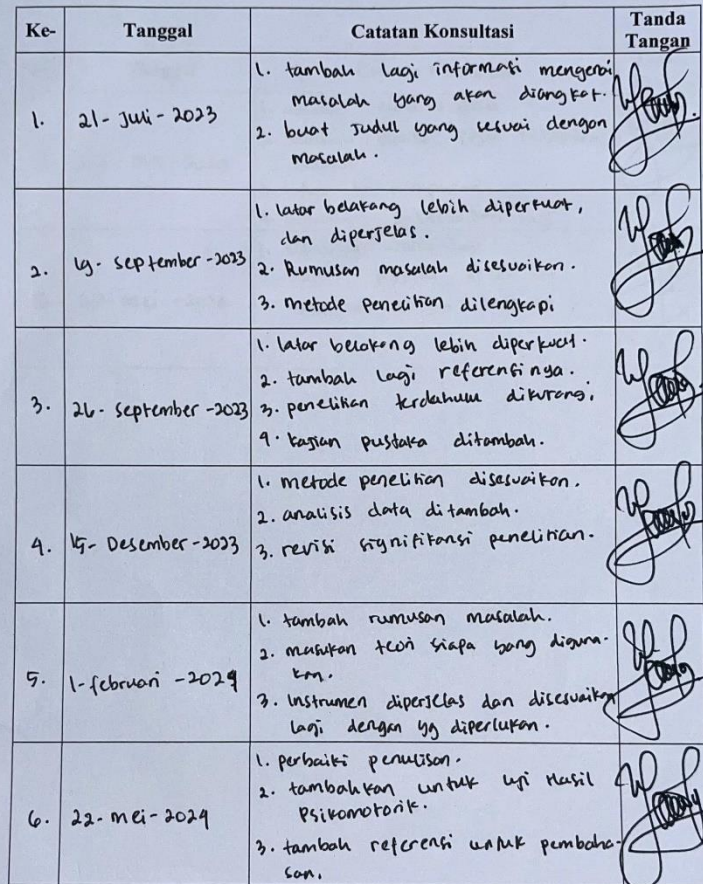 Ke-
Tanggal
Catatan Konsultasi
Tanda
Tangan
1.
21 - Juli - 2023
1. tambah lagi informasi mengenai
masalah yang akan diangkat.
2. buat Judul yang sesuai dengan
masalah.
2.
September - 2023
1. latar belakang lebih diperkuat,
dan diperjelas.
2. Rumusan masalah disesuaikan.
3. metode penelitian dilengkapi
3.
26 - September - 2023
1. latar belakang lebih diperkuat.
2. tambah lagi referensinya.
3. penelitian terdahulu dikurangi
4. kajian pustaka ditambah.
4.
15 - Desember - 2023
1. metode penelitian disesuaikan.
2. analisis data ditambah.
3. revisi signifikansi penelitian.
5.
1 - februari - 2024
1. tambah rumusan masalah.
2. masukan teori siapa yang diguna-
kan.
3. Instrumen diperjelas dan disesuaikan
lagi dengan yg diperlukan.
6.
22 - mei - 2024
1. perbaiki penulisan.
2. tambahkan untuk uji Hasil
Psikomotorik.
3. tambah referensi untuk pembaha-
san.